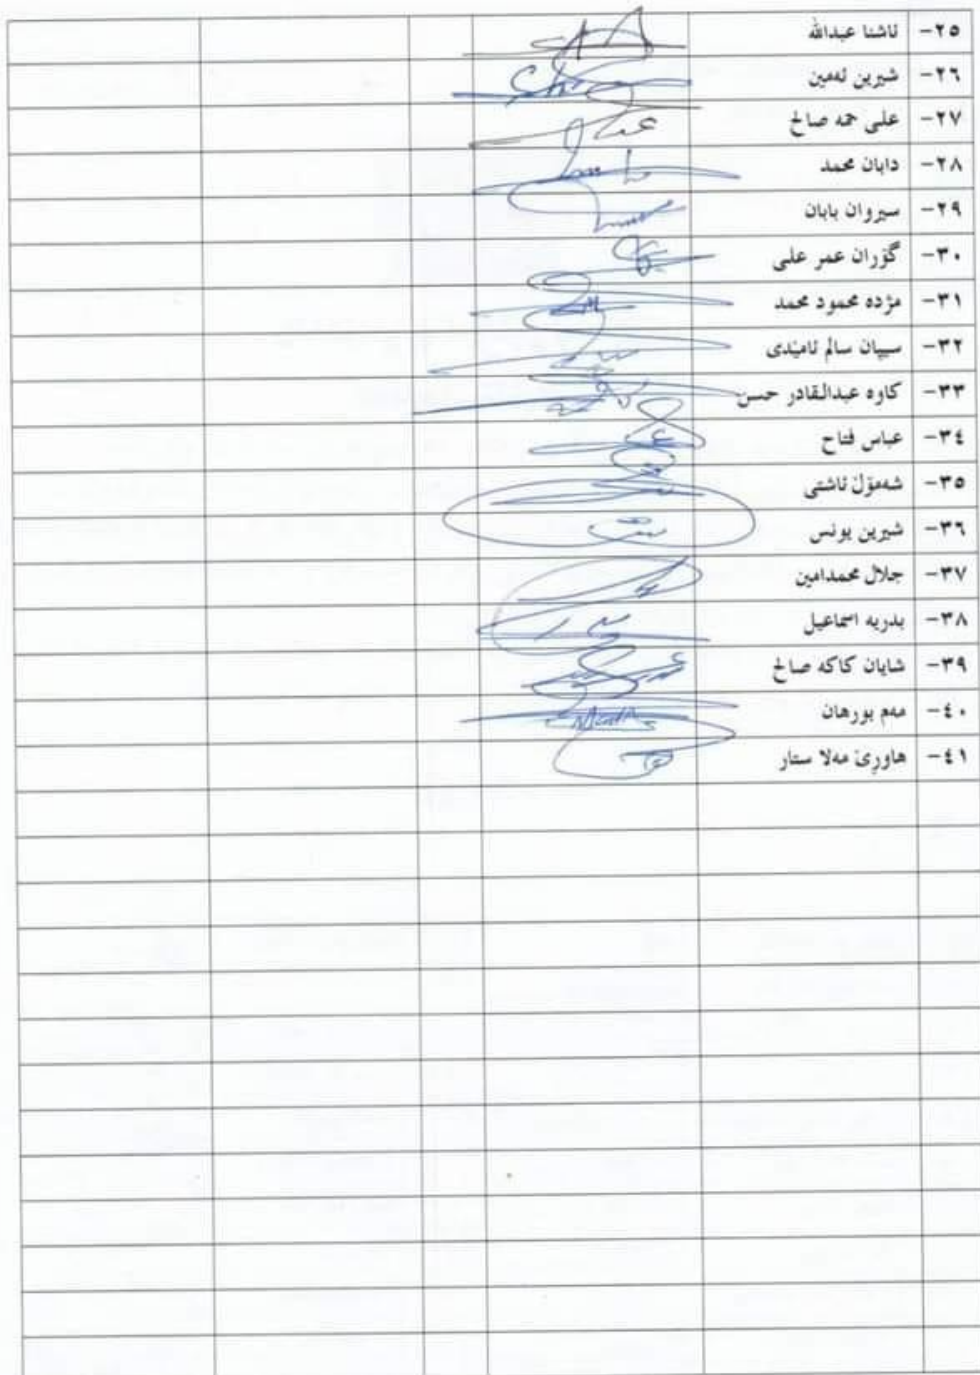 ٢٥- ئاشنا عبدالله
٢٦- شیرین ئەمین
٢٧- علی حمه صالح
٢٨- دابان محمد
٢٩- سیروان بابان
٣٠- گۆران عمر علی
٣١- مژده محمود محمد
٣٢- سیپان سالم ئامێدی
٣٣- کاوه عبدالقادر حسن
٣٤- عباس فتاح
٣٥- شەمۆل ئاشتی
٣٦- شیرین یونس
٣٧- جلال محمدامین
٣٨- بدریه اسماعیل
٣٩- شایان کاکه صالح
٤٠- مەم بورهان
٤١- هاوڕێ مەلا ستار